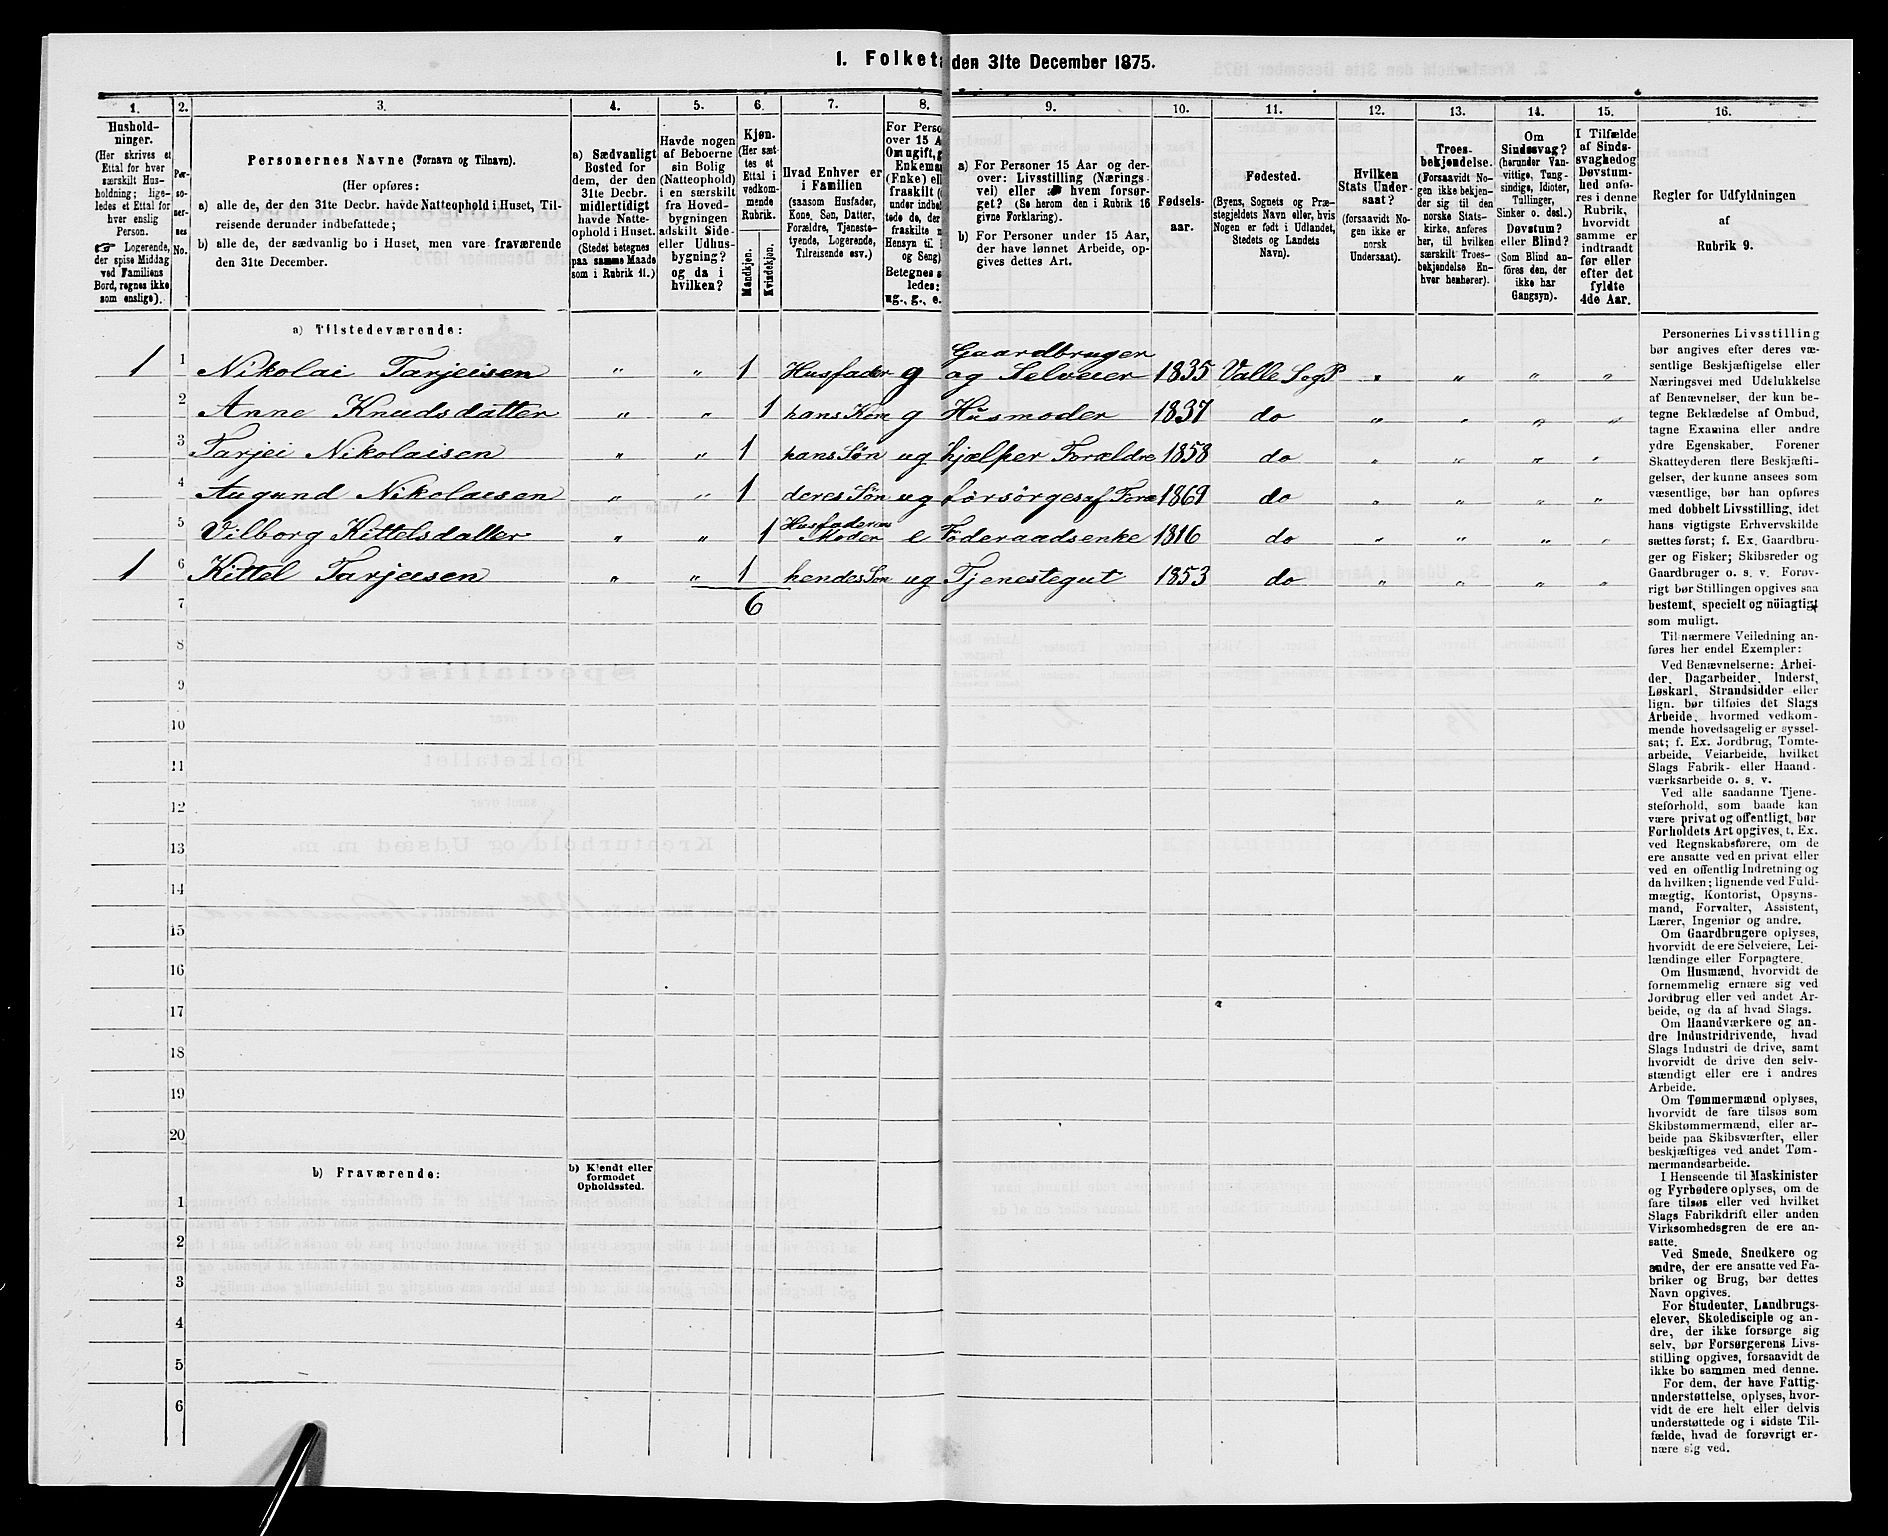 1. Folket den 31te December 1875.
1. 2. 3. 4. 5. 6. 7. 8. 9. 10. 11. 12. 13. 14. 15. 16.
Hushold-
ninger.
(Her skrives et
Ettal for hver
særskilt Hus-
holdning; lige-
ledes et Ettal for
hver enslig
Person.
☞ Logerende,
der spise Middag
ved Familiens
Bord, regnes ikke
som enslige).
Per-
so-
ner-
nes
No.
Personernes Navne (Fornavn og Tilnavn).
(Her opføres:
a) alle de, der den 31te Decbr. havde Natteophold i Huset, Til-
reisende derunder indbefattede;
b) alle de, der sædvanlig bo i Huset, men vare fraværende
den 31te December.
a) Sædvanligt
Bosted for
dem, der den
31te Decbr.
midlertidigt
havde Natte-
ophold i Huset.
(Stedet betegnes
paa samme Maade
som i Rubrik 11.)
Havde nogen
af Beboerne
sin Bolig
(Natteophold)
i en særskilt
fra Hoved-
bygningen
adskilt Side-
eller Udhus-
bygning?
og da i
hvilken?
Kjøn.
(Her sæt-
tes et
Ettal i
vedkom-
mende
Rubrik.
Mandkjøn.
Kvindekjøn.
Hvad Enhver er
i Familien
(saasom Husfader,
Kone, Søn, Datter,
Forældre, Tjeneste-
tyende, Logerende,
Tilreisende osv.)
For Perso
over 15 A
Om ugift, g
Enkema
(Enke) ell
fraskilt (
under indbe
tede de, der
fraskilte
Hensyn til
og Seng)
Betegnes s
ledes:
ug., g., e.
a) For Personer 15 Aar og der-
over: Livsstilling (Nærings-
vei) eller af hvem forsør-
get? (Se herom den i Rubrik 16
givne Forklaring).
b) For Personer under 15 Aar,
der have lønnet Arbeide, op-
gives dettes Art.
Fødsels-
aar.
Fødested.
(Byens, Sognets og Præ-
stegjeldets Navn eller, hvis
Nogen er født i Udlandet,
Stedets og Landets
Navn).
Hvilken
Stats Under-
saat?
(forsaavidt No-
gen ikke er
norsk
Undersaat).
Troes-
bekjendelse.
(Forsaavidt No-
gen ikke bekjen-
der sig til den
norske Stats-
kirke, anføres
her, til hvilken
særskilt Troes-
bekjendelse En-
hver henhører).
Om
Sindssvag?
(herunder Van-
vittige, Tung-
sindige, Idioter,
Tullinger,
Sinker o. desl.)
Døvstum?
eller Blind?
(Som Blind an-
føres den, der
ikke har
Gangsyn).
I Tilfælde
af Sinds-
svaghed og
Døvstum-
hed anfø-
res i denne
Rubrik,
hvorvidt
samme er
indtraadt
før eller
efter det
fyldte
4de Aar.
Regler for Udfyldningen
af
Rubrik 9.
a) Tilstedeværende:
1 1 Nikolai Tarjeisen " " 1 Husfader g Gaardbruger
og Selveier 1835 Valle S og P " " " "
2 Anne Knudsdatter " " 1 hans Kone g Husmoder 1837 do " " " "
3 Tarjei Nikolaisen " " 1 hans Søn ug hjælper Forældre 1858 do " " " "
4 Augund Nikolaisen " " 1 deres Søn ug forsørges af Foræ 1869 do " " " "
5 Vilborg Kittelsdatter " " 1 Husfaderens
Moder e Føderaadsenke 1816 do " " " "
1 6 Kittel Tarjeisen " " 1 hendes Søn ug Tjenestegut 1853 do " " " "
7 6
8
9
10
11
12
13
14
15
16
17
18
19
20
b) Fraværende:
b) Kjendt eller
formodet
Opholdssted.
1
2
3
4
5
6
Personernes Livsstilling
bør angives efter deres væ-
sentlige Beskjæftigelse eller
Næringsvei med Udelukkelse
af Benævnelser, der kun be-
tegne Beklædelse af Ombud,
tagne Examina eller andre
ydre Egenskaber. Forener
Skatteyderen flere Beskjæfti-
gelser, der kunne ansees som
væsentlige, bør han opføres
med dobbelt Livsstilling, idet
hans vigtigste Erhvervskilde
sættes først; f. Ex. Gaardbru-
ger og Fisker; Skibsreder og
Gaardbruger o. s. v. Forøv-
rigt bør Stillingen opgives saa
bestemt, specielt og nöiagtigt
som muligt.
Til nærmere Veiledning an-
føres her endel Exempler:
Ved Benævnelserne: Arbei-
der, Dagarbeider, Inderst,
Løskarl, Strandsidder eller
lign. bør tilføies det Slags
Arbeide, hvormed vedkom-
mende hovedsagelig er syssel-
sat; f. Ex. Jordbrug, Tomte-
arbeide, Veiarbeide, hvilket
Slags Fabrik- eller Haand-
værksarbeide o. s. v.
Ved alle saadanne Tjene-
steforhold, som baade kan
være privat og offentligt, bør
Forholdets Art opgives, t. Ex.
ved Regnskabsførere, om de
ere ansatte ved en privat eller
ved en offentlig Indretning og
da hvilken; lignende ved Fuld-
mægtig, Kontorist, Opsyns-
mand, Forvalter, Assistent,
Lærer, Ingeniør og andre.
Om Gaardbrugere oplyses,
hvorvidt de ere Selveiere, Lei-
lændinge eller Forpagtere.
Om Husmænd, hvorvidt de
fornemmelig ernære sig ved
Jordbrug eller ved andet Ar-
beide, og da af hvad Slags.
Om Haandværkere og an-
dre Industridrivende, hvad
Slags Industri de drive, samt
hvorvidt de drive den selv-
stændigt eller ere i andres
Arbeide.
Om Tømmermænd oplyses,
hvorvidt de fare tilsøs som
Skibstømmermænd, eller ar-
beide paa Skibsværfter, eller
beskjæftiges ved andet Tøm-
mermandsarbeide.
I Henseende til Maskinister
og Fyrbødere oplyses, om de
fare tilsøs eller ved hvilket
Slags Fabrikdrift eller anden
Virksomhedsgren de ere an-
satte.
Ved Smede, Snedkere og
andre, der ere ansatte ved Fa-
briker og Brug, bør dettes
Navn opgives.
For Studenter, Landbrugs-
elever, Skoledisciple og an-
dre, der ikke forsørge sig
selv, bør Forsørgerens Livs-
stilling opgives, forsaavidt de
ikke bo sammen med denne.
For dem, der have Fattig-
understøttelse, oplyses, hvor-
vidt de ere helt eller delvis
understøttede og i sidste Til-
fælde, hvad de forøvrigt er-
nære sig ved.